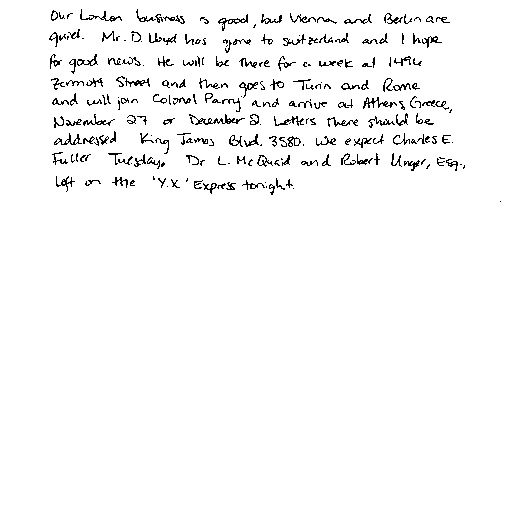 Our London business is good, but Vienna and Berlin are
quiet. Mr. D. Lloyd has gone to Switzerland and I hope
for good news. He will be there for a week at 1496
Zermott Street and then goes to Turin and Rome
and will join Colonel Parry and arrive at Athens, Greece,
November 27 or December 2. Letters there should be
addressed King James Blvd. 3580. We expect Charles E.
Fuller Tuesday. Dr L. McQuaid and Robert Unger, Esq.,
left on the 'Y.X.' Express tonight.